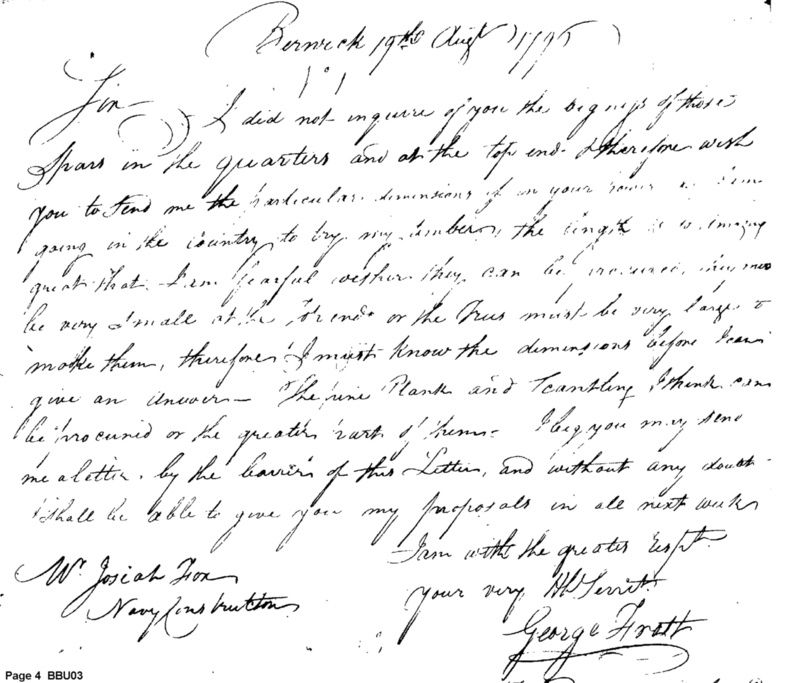 Berwick 19th Augt 1795
Sir— I did not inquire of you the bigness of those
Spars in the quarters and at the top end & therefore wish
you to send me the particular dimensions if in your power as I am
going in the Country to try my timber, the length is so
great that I am fearful wether they can be procured, they
be very Small at the Top ends or the Trees must be very large to
make them, therefore I must know the dimensions before I can
give an answer— The pine Plank and Scantling I think can
be procured or the greater part of them— I beg you may send
me a letter by the barrier of this Letter, and without any doubt
I shall be able to give you my proposals in all next week
I am with the greater Respt
your very Hb Servt
George Frost
Mr Josiah Fox
Navy Constructton
Page 4 BBU03